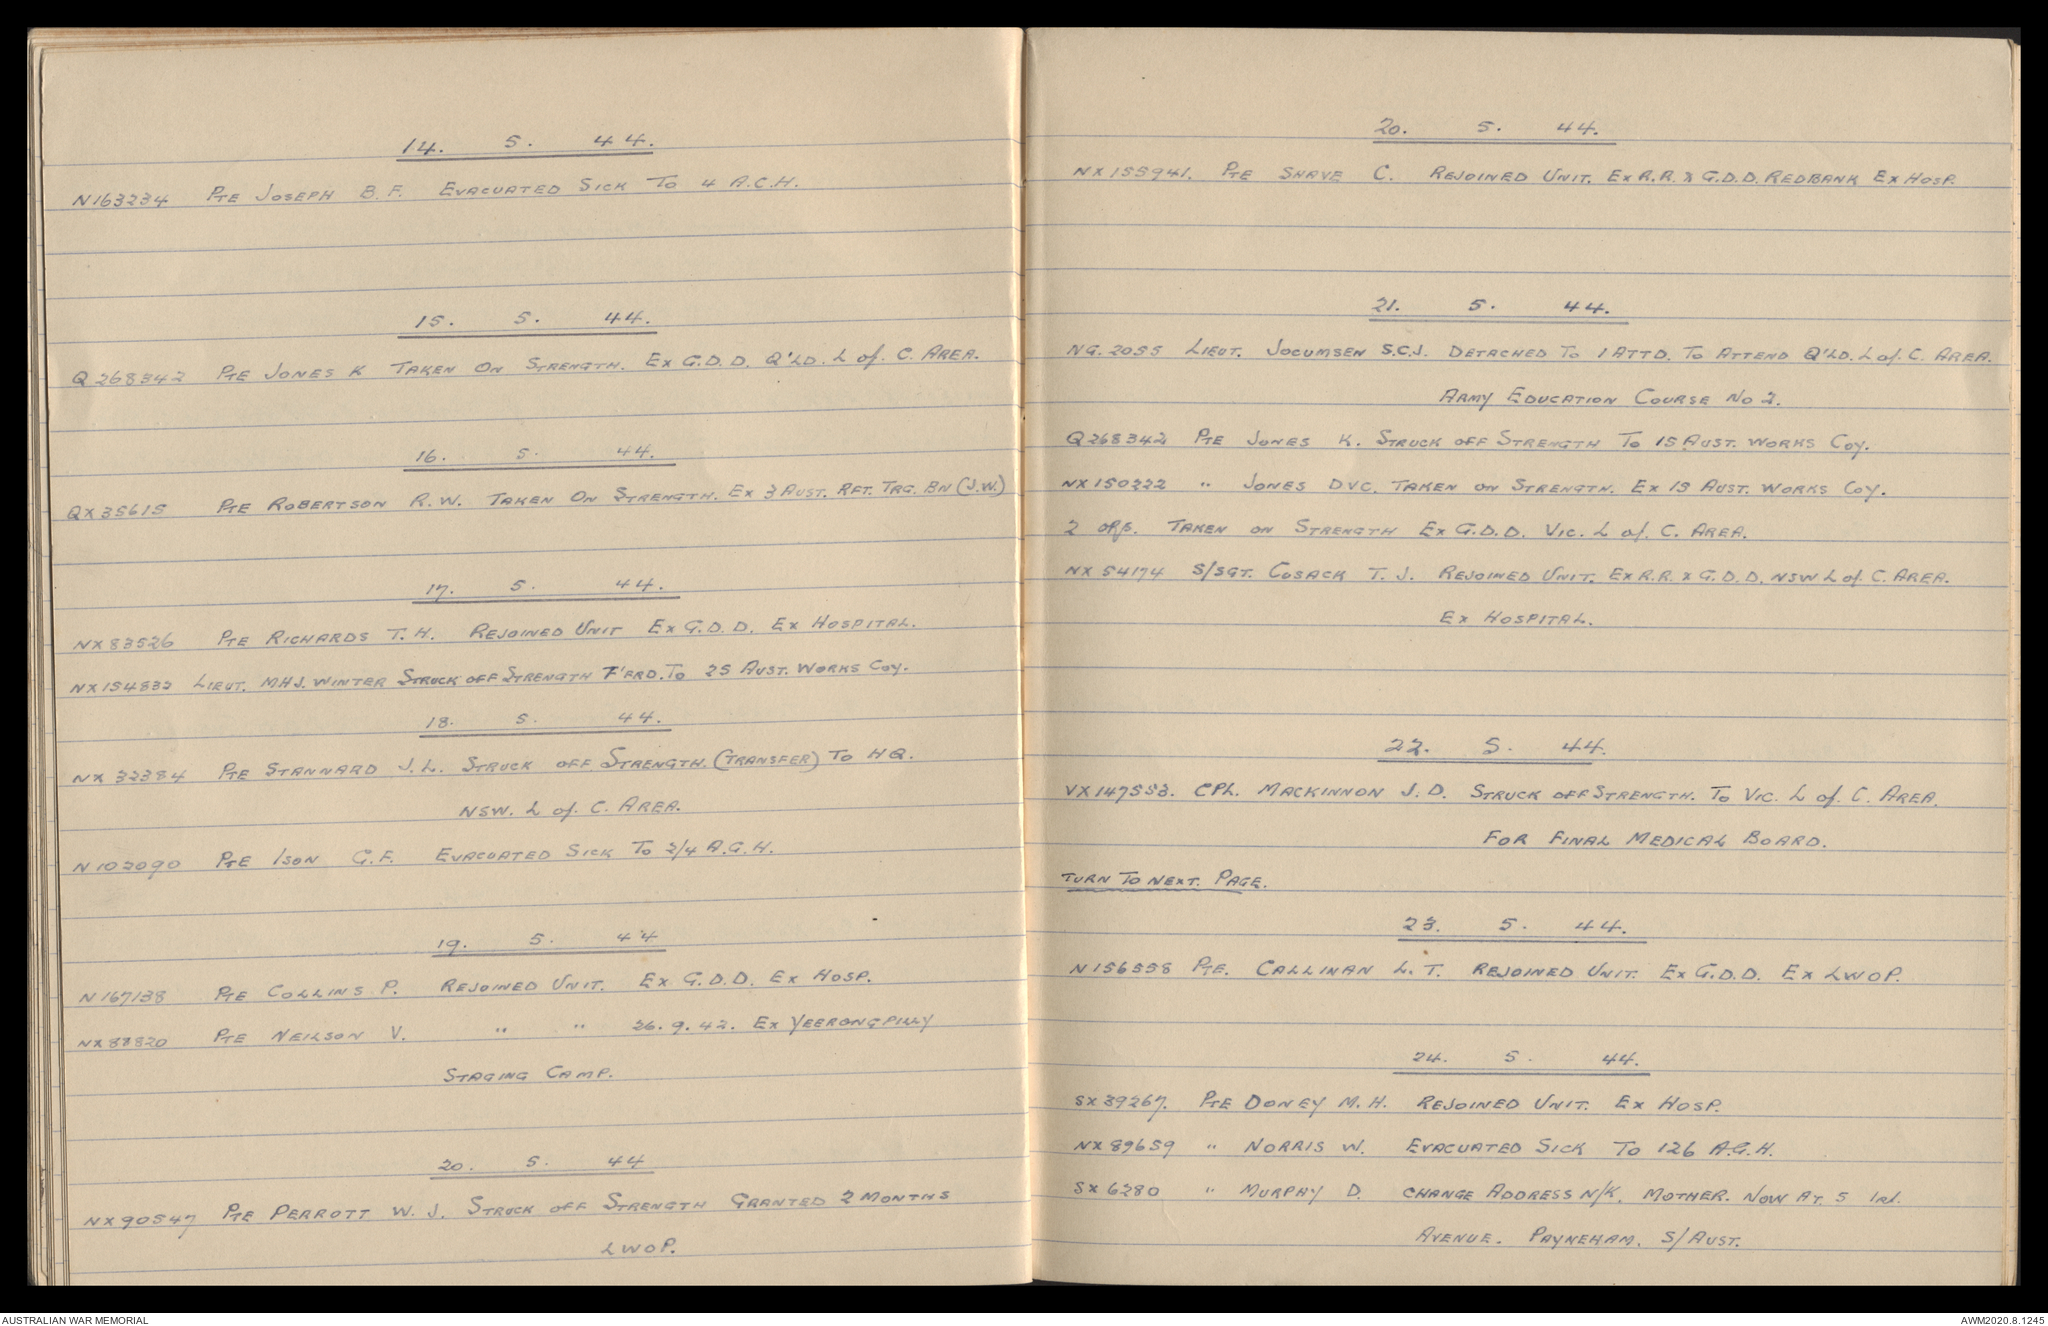 14. 5. 44.
N163234 Pte Joseph B.F. Evacuated Sick To 4 A.C.H.
15. 5. 44.
Q268342 Pte Jones K Taken On Strength. Ex G.D.D. Q'LD. L of. C. Area.
16. 5. 44.
QX35615 Pte Robertson R.W. Taken On Strength. Ex 3 Aust. Rft. Trg. Bn (J.W.)
17. 5. 44.
NX83526 Pte Richards T.H. Rejoined Unit Ex G.D.D. Ex Hospital.
NX154832 Lieut. MHJ. Winter Struck off Strength T'frd. To 25 Aust. Works Coy.
18. 5. 44.
NX32384 Pte Stannard J.L. Struck off Strength. (Transfer) To HQ.
NSW. L of. C. Area.
N102090 Pte Ison G.F. Evacuated Sick To 2/4 A.G.H.
19. 5. 44
N167138 Pte Collins P. Rejoined Unit. Ex G.D.D. Ex Hosp.
NX88820 Pte Neilson V. " " 26.9.42. Ex Yeerongpilly
Staging Camp.
20. 5. 44
NX90547 Pte Perrott W.J. Struck off Strength Granted 2 Months
LWOP.
20. 5. 44.
NX155941. Pte Shave C. Rejoined Unit. Ex R.R. & G.D.D. Redbank Ex Hosp.
21. 5. 44.
NG.2055 Lieut. Jocumsen S.C.J. Detached To 1 Attd. To Attend Q'LD. L of. C. Area.
Army Education Course No 2.
Q268342 Pte Jones K. Struck off Strength To 15 Aust. Works Coy.
NX150222 " Jones DVC. Taken on Strength. Ex 15 Aust. Works Coy.
2 ORs. Taken on Strength Ex G.D.D. Vic. L of. C. Area.
NX54174 S/Sgt. Cosack T.J. Rejoined Unit. Ex R.R. & G.D.D. NSW L of. C. Area.
Ex Hospital.
22. 5. 44.
VX147553. Cpl. Mackinnon J.D. Struck off Strength. To Vic. L of. C. Area.
For Final Medical Board.
Turn To Next. Page.
23. 5. 44.
N156558 Pte. Callinan L.T. Rejoined Unit. Ex G.D.D. Ex LWOP.
24. 5. 44.
SX39267. Pte Doney M.H. Rejoined Unit. Ex Hosp.
NX89659 " Norris W. Evacuated Sick To 126 A.G.H.
SX6280 " Murphy D. Change Address N/K. Mother. Now At. 5 1st.
Avenue. Payneham. S/Aust.
AUSTRALIAN WAR MEMORIAL
AWM2020.8.1245